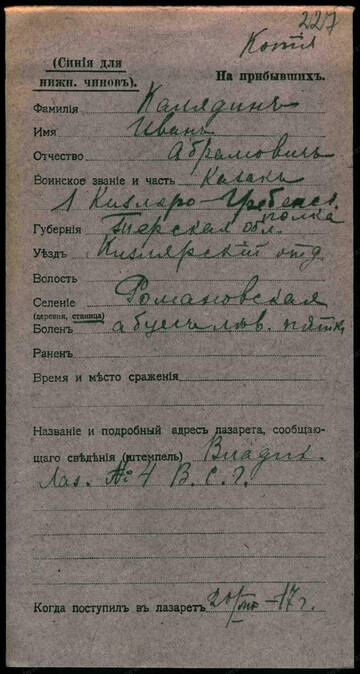 227
Копія
(Синія для
нижн. чиновъ).
На прибывшихъ.
Фамилія Калядинъ
Имя Иванъ
Отчество Абрамовичъ
Воинское званіе и часть Казакъ
1 Кизляро-Гребенск.
полка
Губернія Терская обл.
Уѣздъ Кизлярскій отд.
Волость
Селеніе Романовская
(деревня, станица)
Боленъ абсцесъ лѣв. пятки
Раненъ
Время и мѣсто сраженія
Названіе и подробный адресъ лазарета, сообщаю-
щаго свѣдѣнія (штемпель) Владик.
Лаз. № 4 В. С. Г.
Когда поступилъ въ лазаретъ 20/ –17 г.